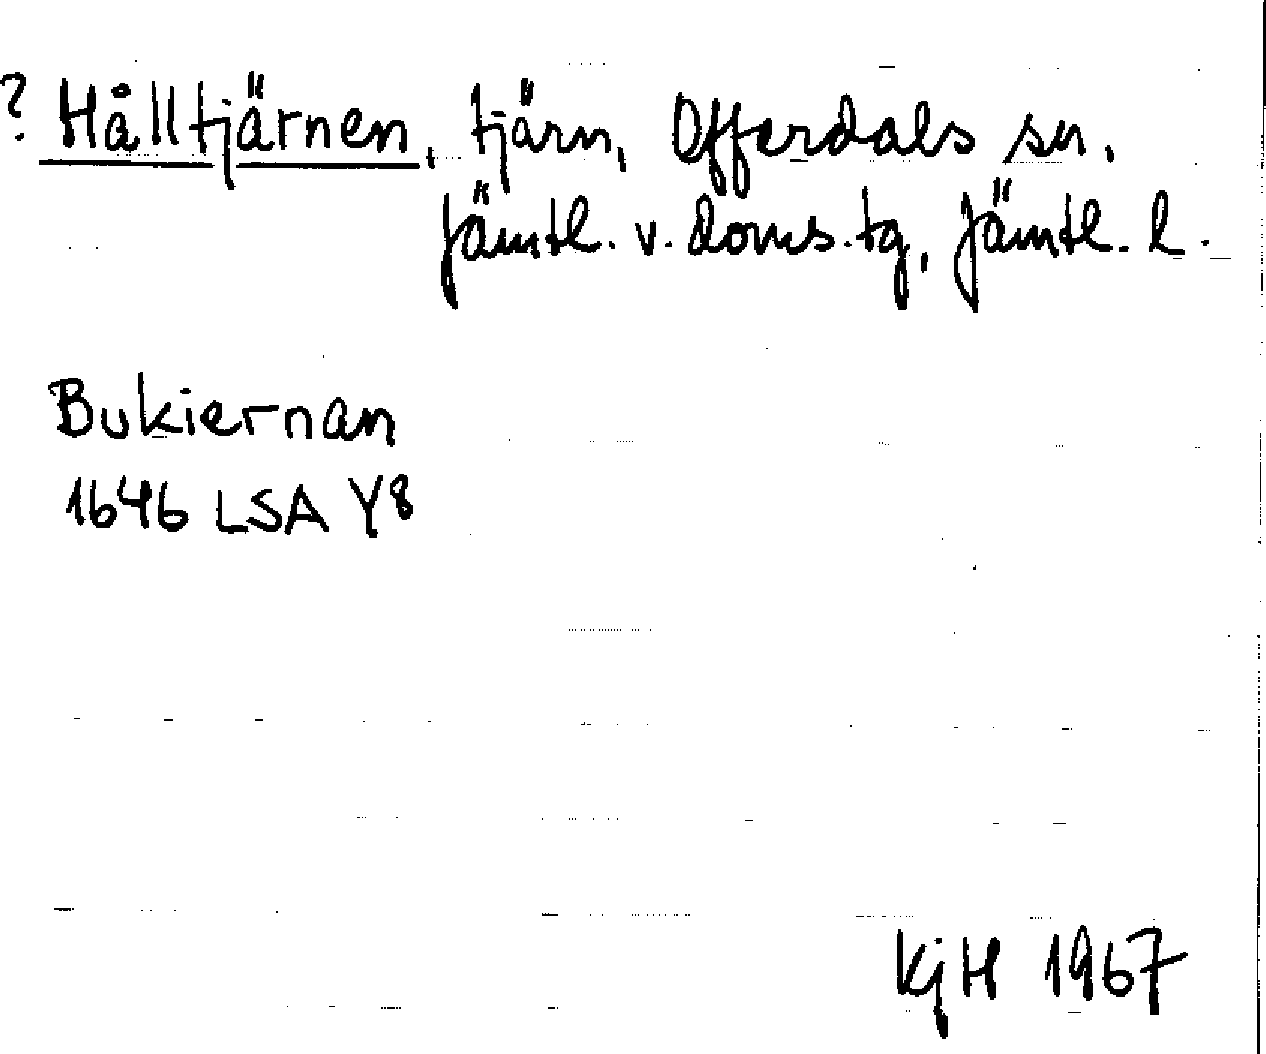 ? Hålltjärnen, tjärn, Offerdals sn.
Jämtl. v. doms.tg, Jämtl. l.
Bukiernan
1646 LSA Y8
KjH 1967